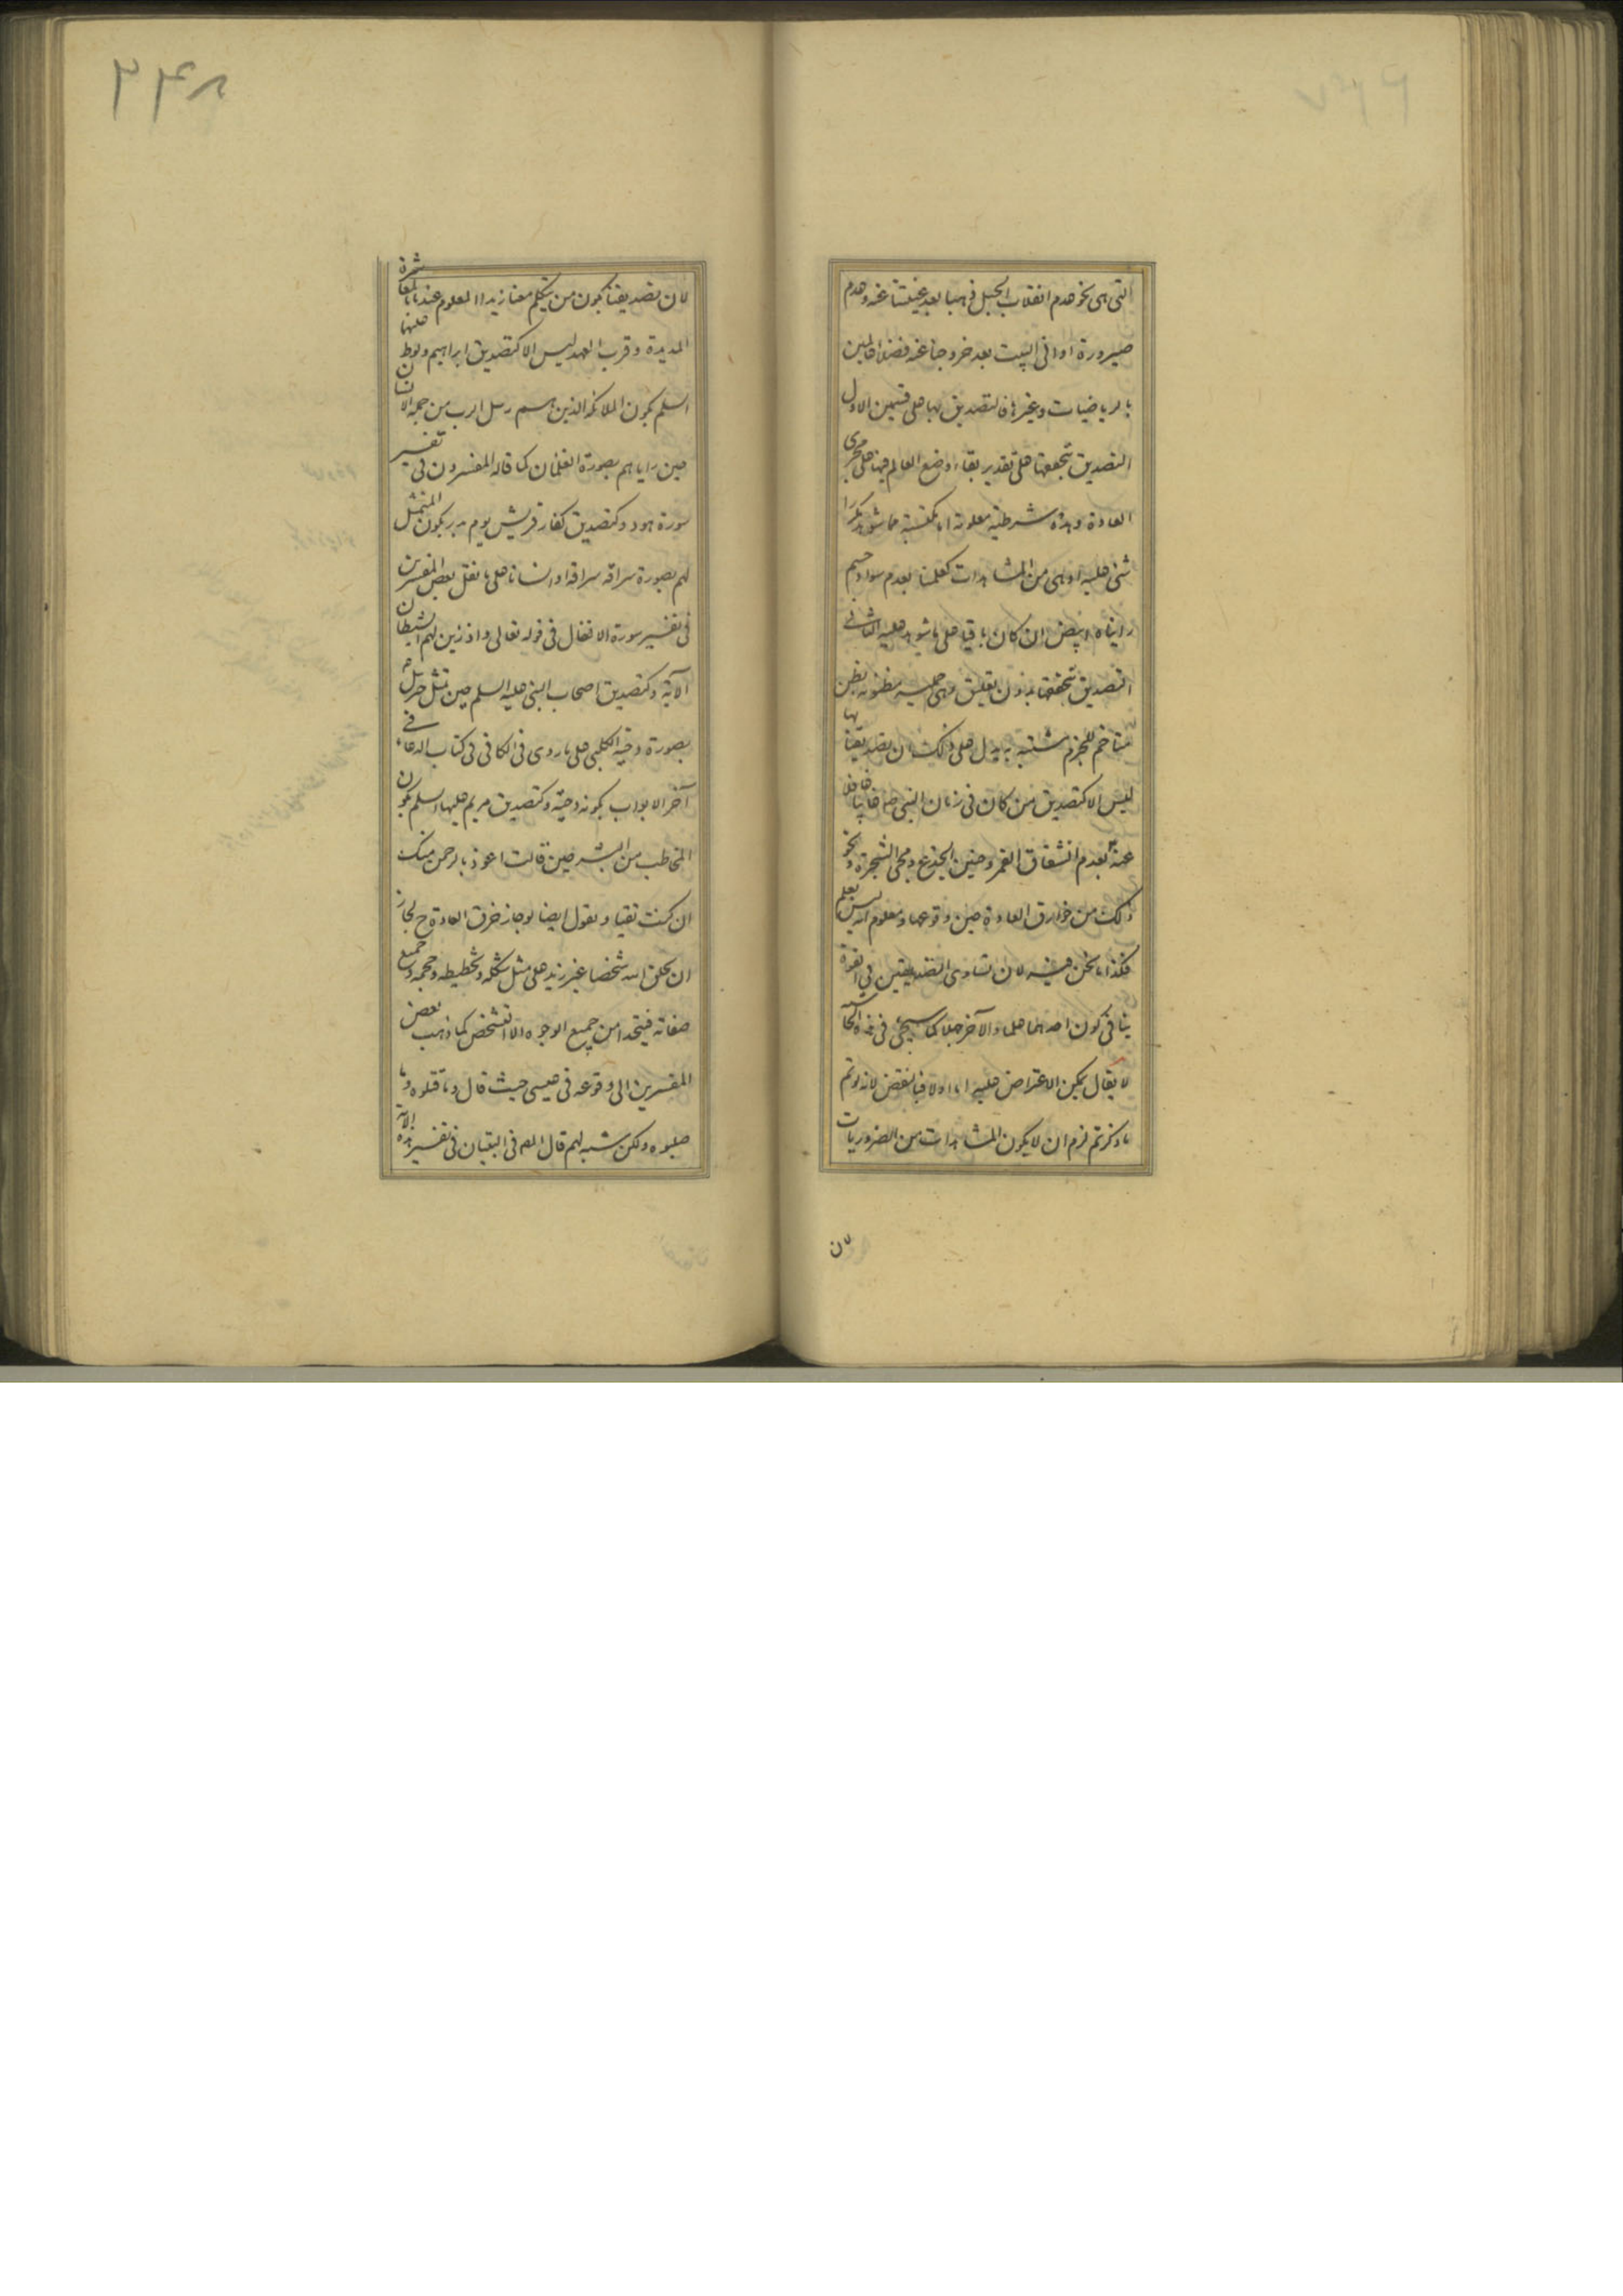 التی هی نحو عدم انقلاب الجبل ذهبا بعد غیبتنا عنه وعدم
صیرورة اوانی البیت بعد خروجنا عنه فضلاء عالمین
بالریاضیات وغیرها فالتصدیق بها علی قسمین الاول
التصدیق بتحققها علی تقدیر بقاء اوضاع العالم فیها علی مجری
العادة وهذه شرطیة معلومة اما مکتسبة مما شوهد مکررا
شئ علیه او هی من المشاهدات کعلمنا بعدم سواد جسم
رایناه ابیض ان کان باقیا علی ما شوهد علیه الثانی
التصدیق بتحققها بدون تعلیق وهی حملیة مظنونة بظن
متاخم للجزم مشتبه به یدل علی ذلک ان تصدیقنا بها
لیس الا کتصدیق من کان فی زمان النبی ص غایبا غافلا
عنه بعدم انشقاق القمر وحنین الجذع ومجئ الشجرة ونحو
ذلک من خوارق العادة حین وقوعها ومعلوم انه لیس بعلم
فکذا ما نحن فیه لان تساوی التصدیقین فی القوة
ینافی کون احدهما علما والآخر جهلا کما سیجئ فی هذه الحاشیة
لا یقال یمکن الاعتراض علیه اما اولا فبالنقض لانه لو تم
ما ذکرتم لزم ان لا یکون المشاهدات من الضروریات
لان
۳۴۸
لان تصدیقنا بکون من یتکلم معنا زیدا المعلوم عندنا بالمعاشرة
المدیدة وقرب العهد لیس الا کتصدیق ابراهیم ولوط علیهما
السلم بکون الملائکة الذین هم رسل الرب من جملة الانسان
حین رایاهم بصورة الغلمان کما قاله المفسرون فی تفسیر
سورة هود وکتصدیق کفار قریش یوم بدر بکون المتمثل
لهم بصورة سراقة سراقة او انسانا علی ما نقل بعض المفسرین
فی تفسیر سورة الانفال فی قوله تعالی واذ زین لهم الشیطان
الآیة وکتصدیق اصحاب النبی علیه السلم حین تمثل جبرئیل
بصورة دحیة الکلبی علی ما روی فی الکافی فی کتاب الدعاء فی
آخر الابواب بکونه دحیة وکتصدیق مریم علیها السلم بکون
المخاطب من البشر حین قالت اعوذ بالرحمن منک
ان کنت تقیا ونقول ایضا لو جاز خرق العادة ح لجاز
ان یخلق الله شخصا غیر زید علی مثل شکله وتخطیطه وحجمه وجمیع
صفاته فیتحدا من جمیع الوجوه الا التشخص کما ذهب بعض
المفسرین الی وقوعه فی عیسی حیث قال وما قتلوه وما
صلبوه ولکن شبه لهم قال المص فی التبیان فی تفسیر هذه الآیة